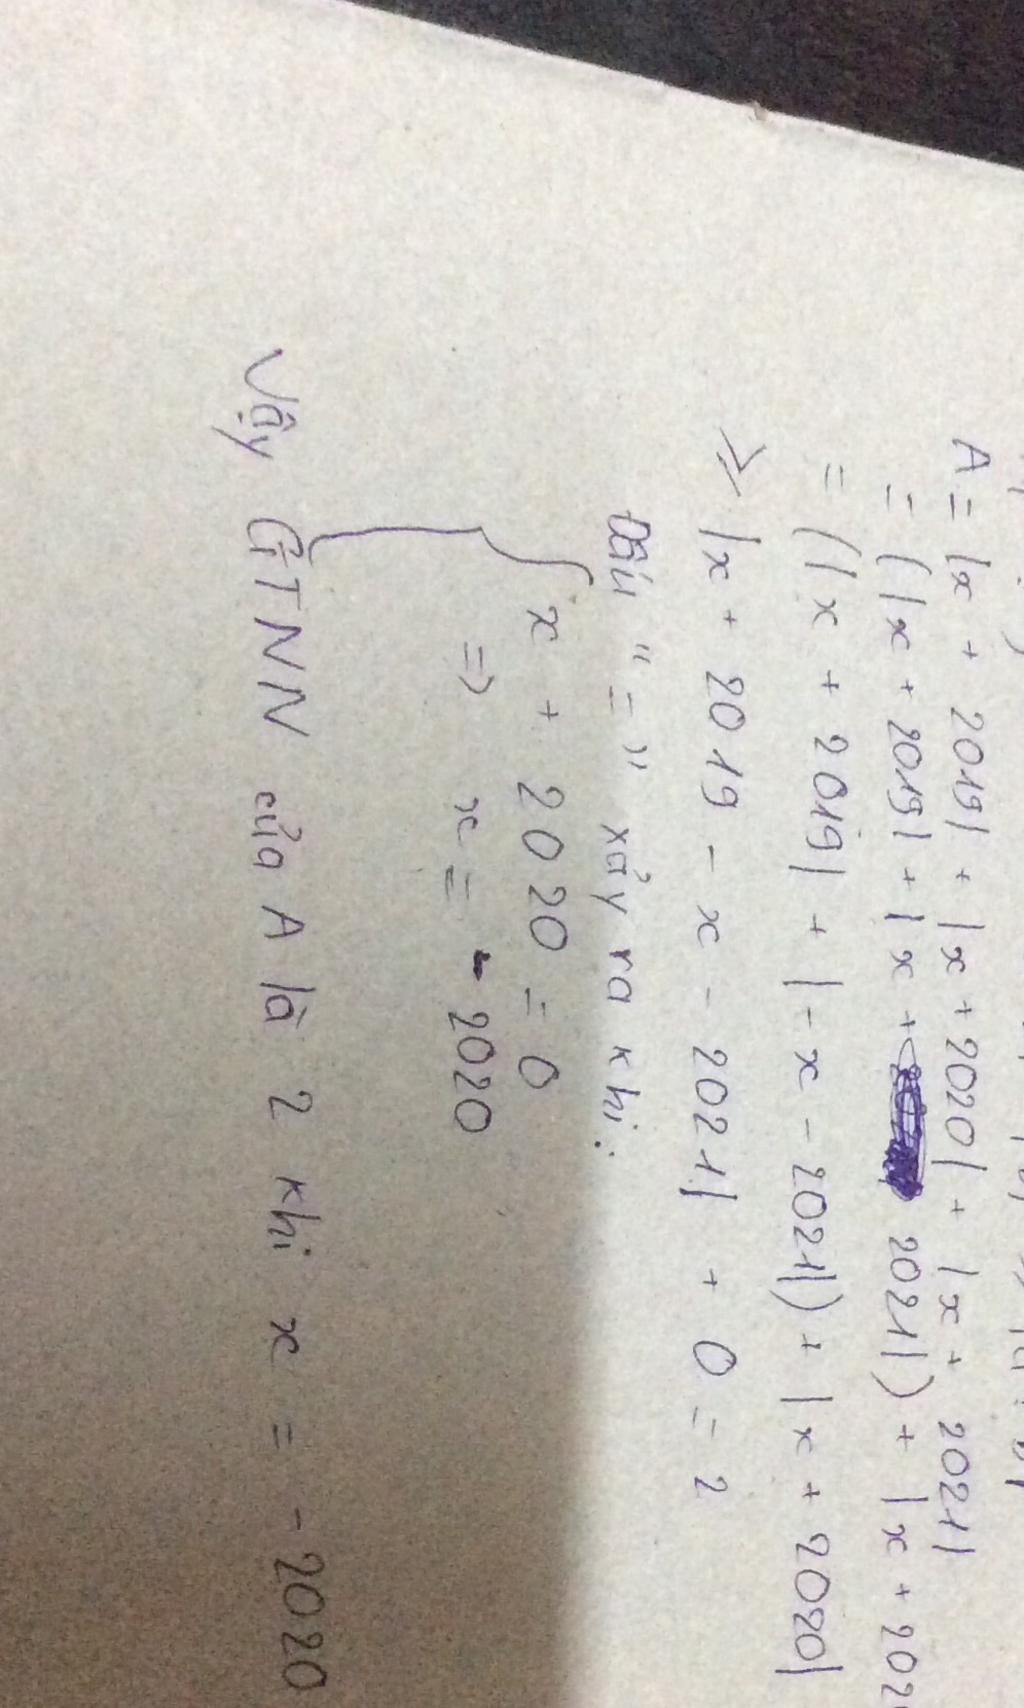 A = |x + 2019| + |x + 2020| + |x + 2021|
= (|x + 2019| + |x + 2021|) + |x + 202
= (|x + 2019| + |-x - 2021|) + |x + 2020|
≥ |x + 2019 - x - 2021| + 0 = 2
Dấu "=" xảy ra khi:
{ x + 2020 = 0
=> x = -2020
Vậy GTNN của A là 2 khi x = -2020